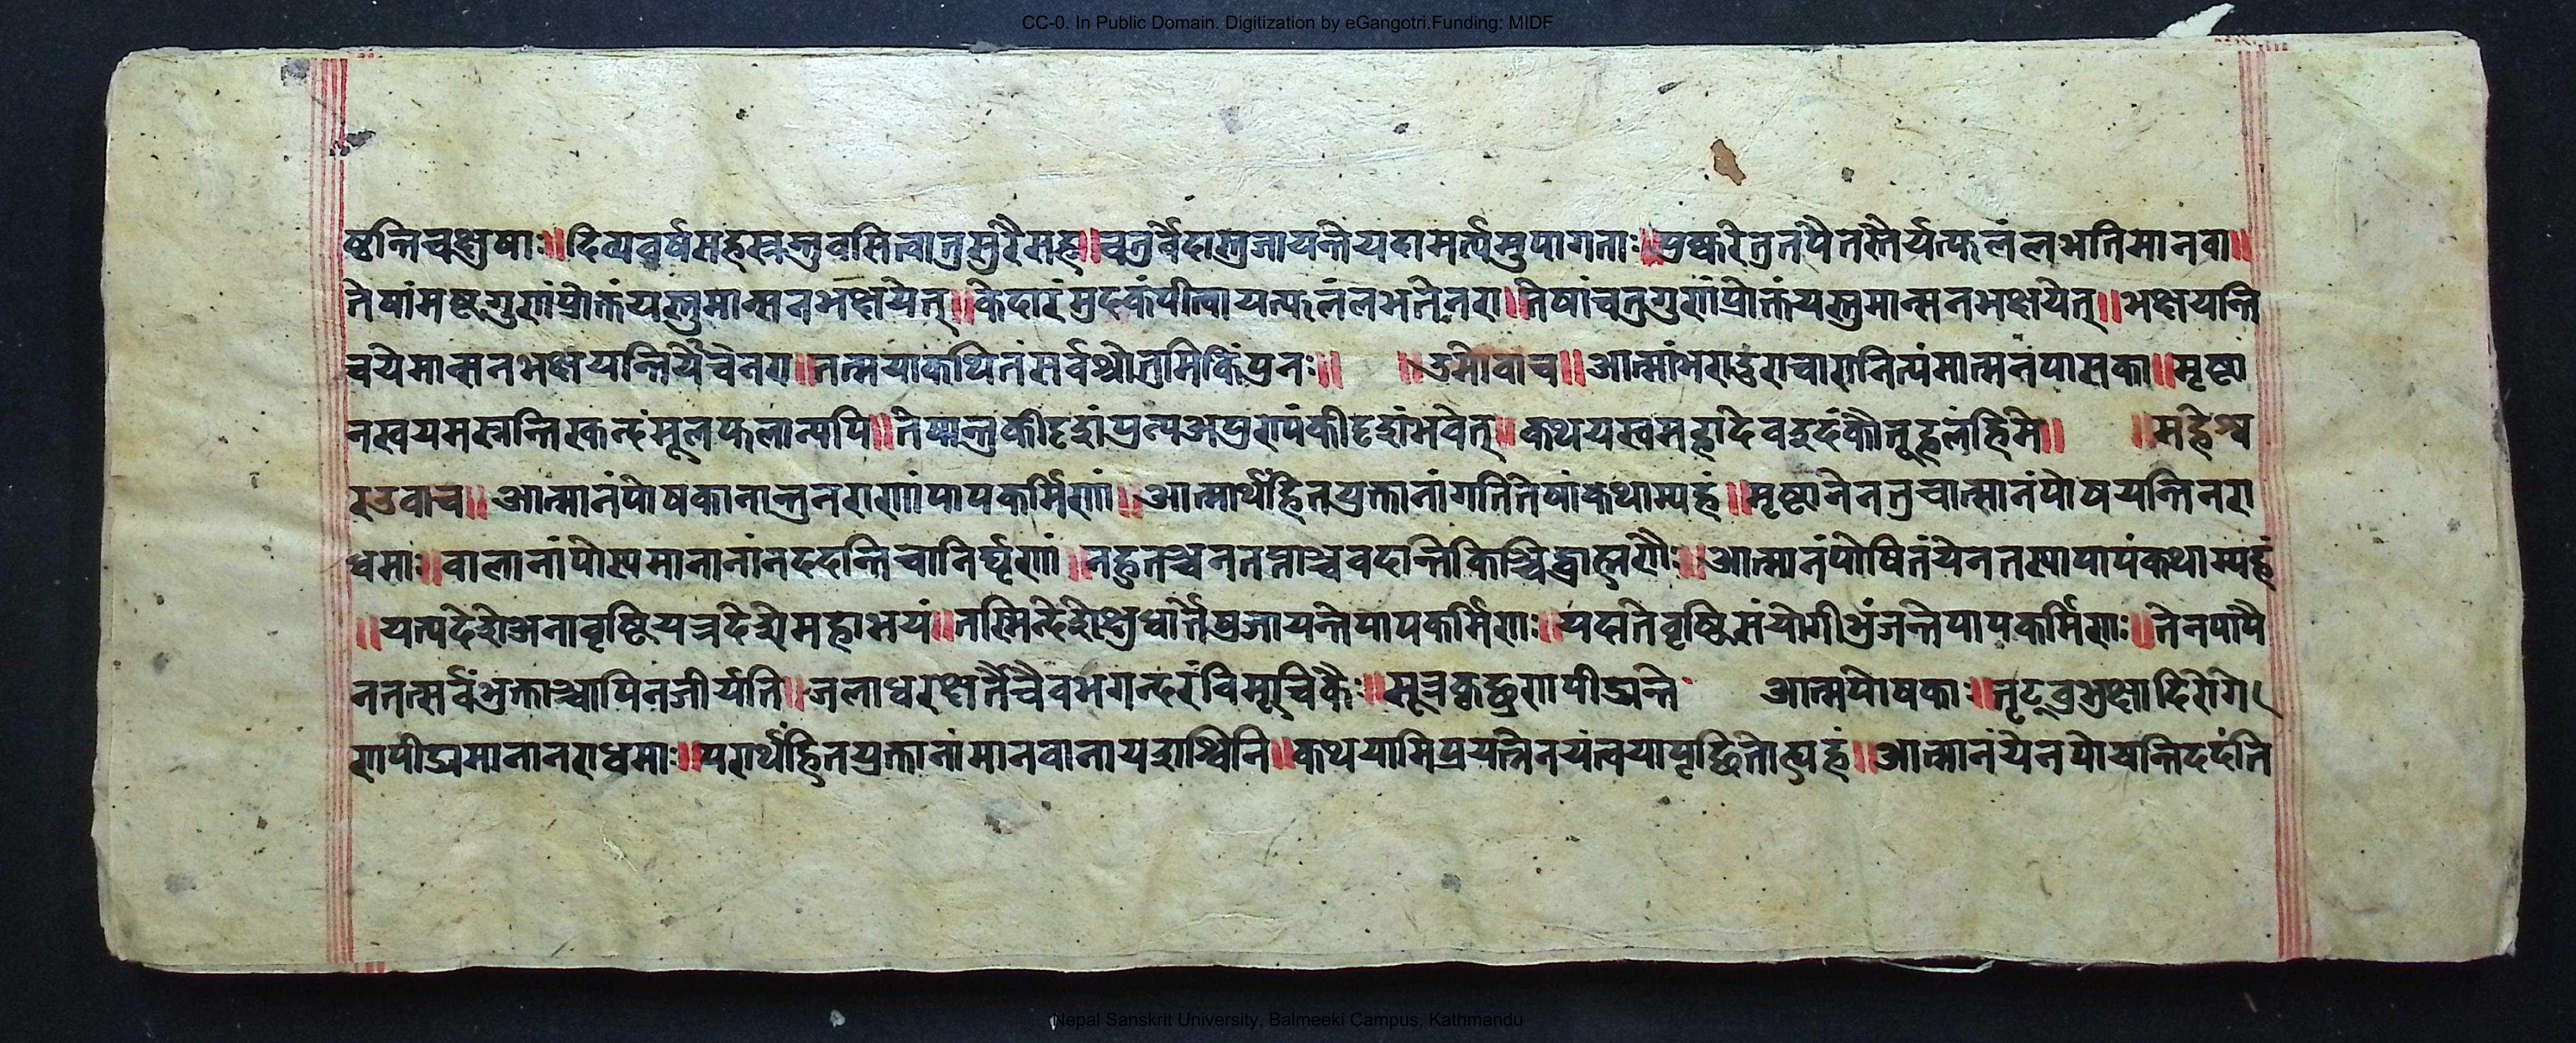 CC-0. In Public Domain. Digitization by eGangotri.Funding: MIDF
ष्ठन्तिचक्षुषाः॥दिव्यवर्षसहस्रन्तुवसित्वातुसुरैसह॥चतुर्वेदास्तुजायन्तेयदामर्त्यमुपागताः॥पुष्करेतुतपैतस्तैर्यत्फलंलभतिमानवा॥
तेषांमष्टगुणंप्रोक्तंयस्तुमान्सनभक्षयेत्॥केदारंमुदकंपीत्वायत्फलंलभतेनरा॥तेषांचतुगुणंप्रोक्तंयस्तुमान्सनभक्षयेत्॥भक्षयन्ति
चयेमान्सनभक्षयन्तियेचेनरा॥तत्मयाकथितंसर्वश्रोतुमिकिंपुनः॥ ॥उमोवाच॥आत्मांभराडुराचारानित्यंमात्मनंपासका॥मृष्टा
नस्वयमस्नन्तिस्कन्दंमूलफलान्यपि॥तेषान्तुकीदृशंपुन्यअपुण्यंकीदृशंभवेत्॥कथयस्वमहादेवइदंकौतूहलंहिमे॥ ॥महेश्व
रउवाच॥आत्मानंपोषकानान्तुनराणांपापकर्मिणां॥आत्मार्थंहितयुक्तानांगतितेषांकथाम्यहं॥मृष्टानेनतुचात्मानंपोषयन्तिनरा
धमाः॥वालानांपोस्यमानानांनददन्तिचानिर्घृणां॥नहुतञ्चनतप्ताञ्चवदान्तिकिञ्चिद्ब्राह्मणैः॥आत्मानंपोषितंयेनतस्यापापंकथाम्यहं
॥यत्पदेशेअनावृष्टियत्रदेशेमहाभयं॥तस्मिन्देशेक्षुधार्तेषुजायन्तेपापकर्मिणाः॥यदातेवृष्टिसंयोगीभुंजन्तेपापकर्मिणाः॥तेनपापै
नतत्सर्वंभुक्ताञ्चापिनजीर्यति॥जलाधरक्षतैचैवभगन्दरंविसूचिकैः॥मूत्रकृच्छ्रणपीड्यन्ते आत्मपोषकाः॥तृटूवुभुक्षादिरोगे
णपीड्यमानानराधमाः॥परार्थंहितयुक्तानांमानवानायशश्विनि॥कथयामिप्रयत्नेनयंत्वयापृच्छितोत्यहं॥आत्मानंयेनपोचन्तिददंति
Nepal Sanskrit University, Balmeeki Campus, Kathmandu